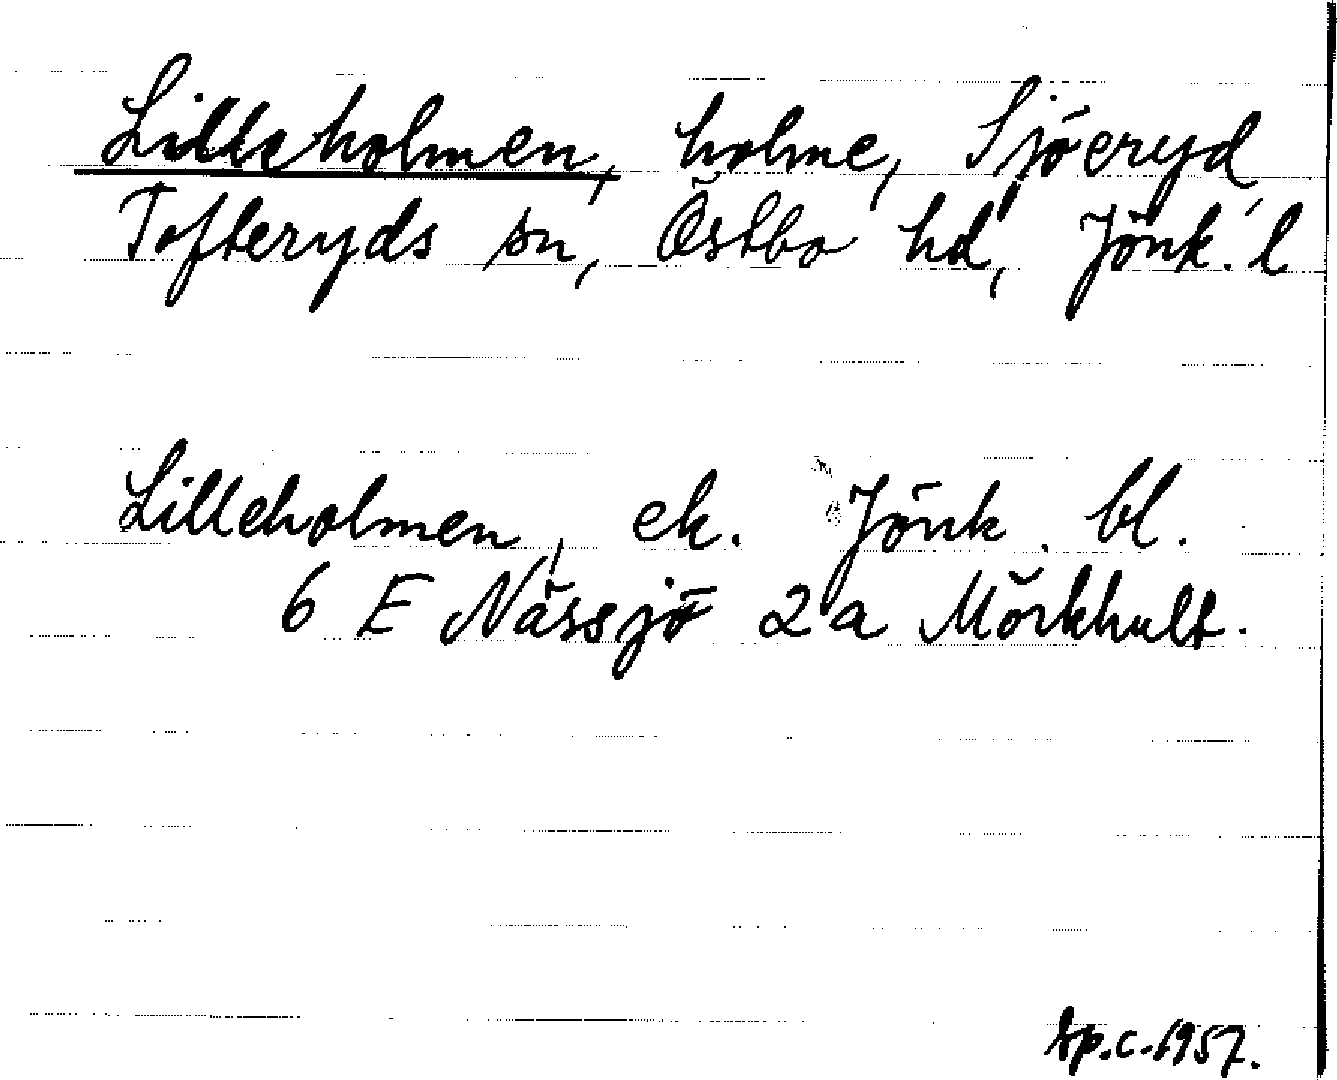 Lilleholmen, holme, Sjöeryd,
Tofteryds sn, Östbo hd, Jönk. l
Lilleholmen, ek. Jönk. bl.
6 E Nässjö 2 a Mörkhult.
Ap.c. 1957.